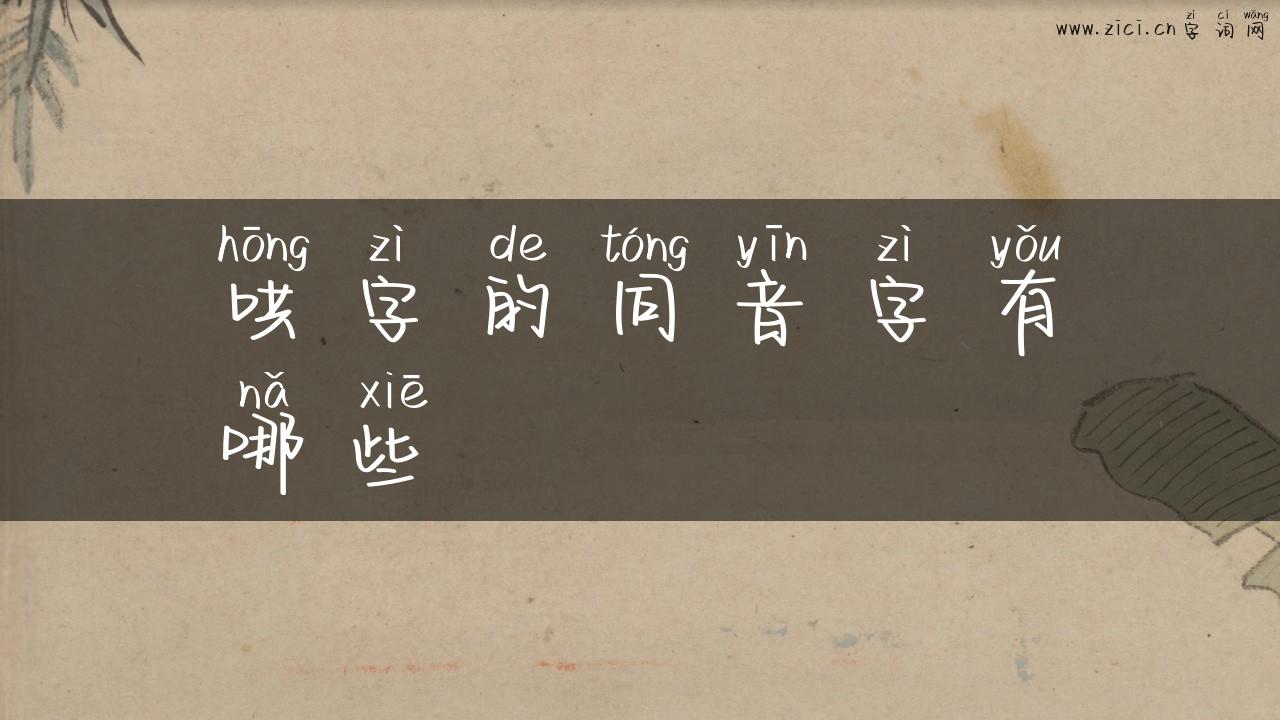 zì cí wǎng
www.zici.cn 字词网
hōng zì de tóng yīn zì yǒu
哄字的同音字有
nǎ xiē
哪些